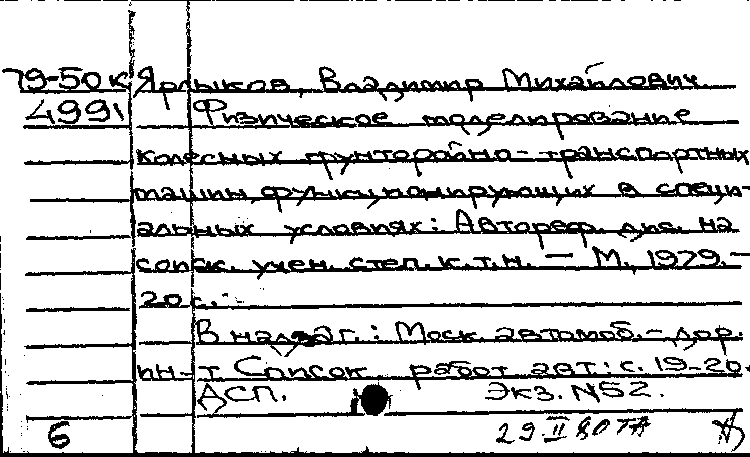 79-50к Ярлыков, Владимир Михайлович.
4991 Физическое моделирование
колесных грунторойно-транспортных
машин, функционирующих в специ-
альных условиях: Автореф. дис. на
соиск. учен. степ. к.т.н. — М., 1979. —
20 с. -
В надзаг.: Моск. автомоб.-дор.
ин-т Список работ авт: с. 19-20.
ДСП. Экз. №52.
6 29 II 80